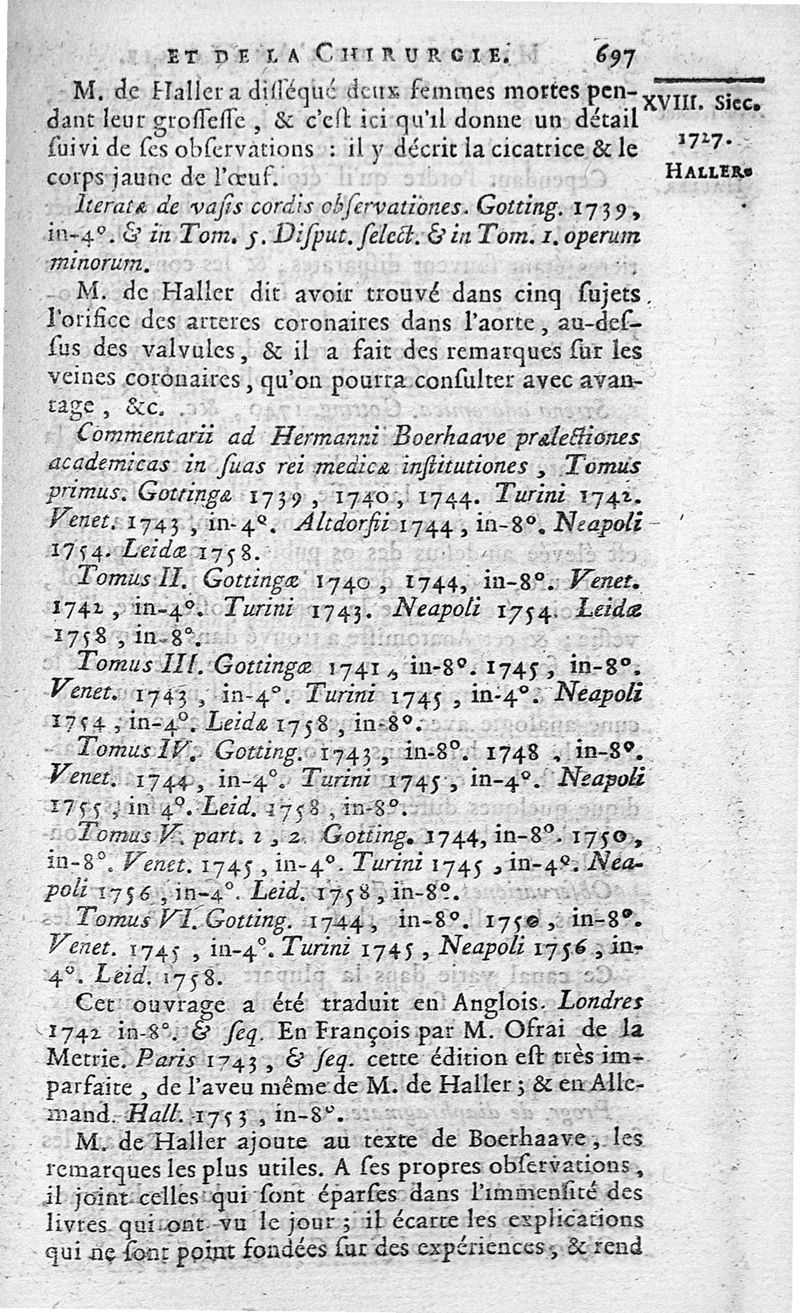 ET DE LA CHIRURGIE. 697
XVIII. Siec.
1727.
HALLER.
M. de Haller a diſſéqué deux femmes mortes pen-
dant leur groſſeſſe, & c'eſt ici qu'il donne un détail
ſuivi de ſes obſervations : il y décrit la cicatrice & le
corps jaune de l'œuf.
Iteratæ de vaſis cordis obſervationes. Gotting. 1739,
in-4°. & in Tom. 5. Diſput. ſelect. & in Tom. 1. operum
minorum.
M. de Haller dit avoir trouvé dans cinq ſujets
l'orifice des arteres coronaires dans l'aorte, au-deſ-
ſus des valvules, & il a fait des remarques ſur les
veines coronaires, qu'on pourra conſulter avec avan-
tage, &c.
Commentarii ad Hermanni Boerhaave prælectiones
academicas in ſuas rei medicæ inſtitutiones, Tomus
primus. Gottingæ 1739, 1740, 1744. Turini 1742.
Venet. 1743, in-4°. Altdorfii 1744, in-8°. Neapoli
1754. Leidæ 1758.
Tomus II. Gottingæ 1740, 1744, in-8°. Venet.
1742, in-4°. Turini 1743. Neapoli 1754. Leidæ
1758, in-8°.
Tomus III. Gottingæ 1741, in-8°. 1745, in-8°.
Venet. 1743, in-4°. Turini 1745, in-4°. Neapoli
1754, in-4°. Leidæ 1758, in-8°.
Tomus IV. Gotting. 1743, in-8°. 1748, in-8°.
Venet. 1744, in-4°. Turini 1745, in-4°. Neapoli
1755, in 4°. Leid. 1758, in-8°.
Tomus V. part. 1, 2. Gotting. 1744, in-8°. 1750,
in-8°. Venet. 1745, in-4°. Turini 1745, in-4°. Nea-
poli 1756, in-4°. Leid. 1758, in-8°.
Tomus VI. Gotting. 1744, in-8°. 1750, in-8°.
Venet. 1745, in-4°. Turini 1745, Neapoli 1756, in-
4°. Leid. 1758.
Cet ouvrage a été traduit en Anglois. Londres
1742 in-8°. & ſeq. En François par M. Ofrai de la
Metrie. Paris 1743, & ſeq. cette édition eſt très im-
parfaite, de l'aveu même de M. de Haller ; & en Alle-
mand. Hall. 1753, in-8°.
M. de Haller ajoute au texte de Boerhaave, les
remarques les plus utiles. A ſes propres obſervations,
il joint celles qui ſont éparſes dans l'immenſité des
livres qui ont vu le jour ; il écarte les explications
qui ne ſont point fondées ſur des expériences, & rend